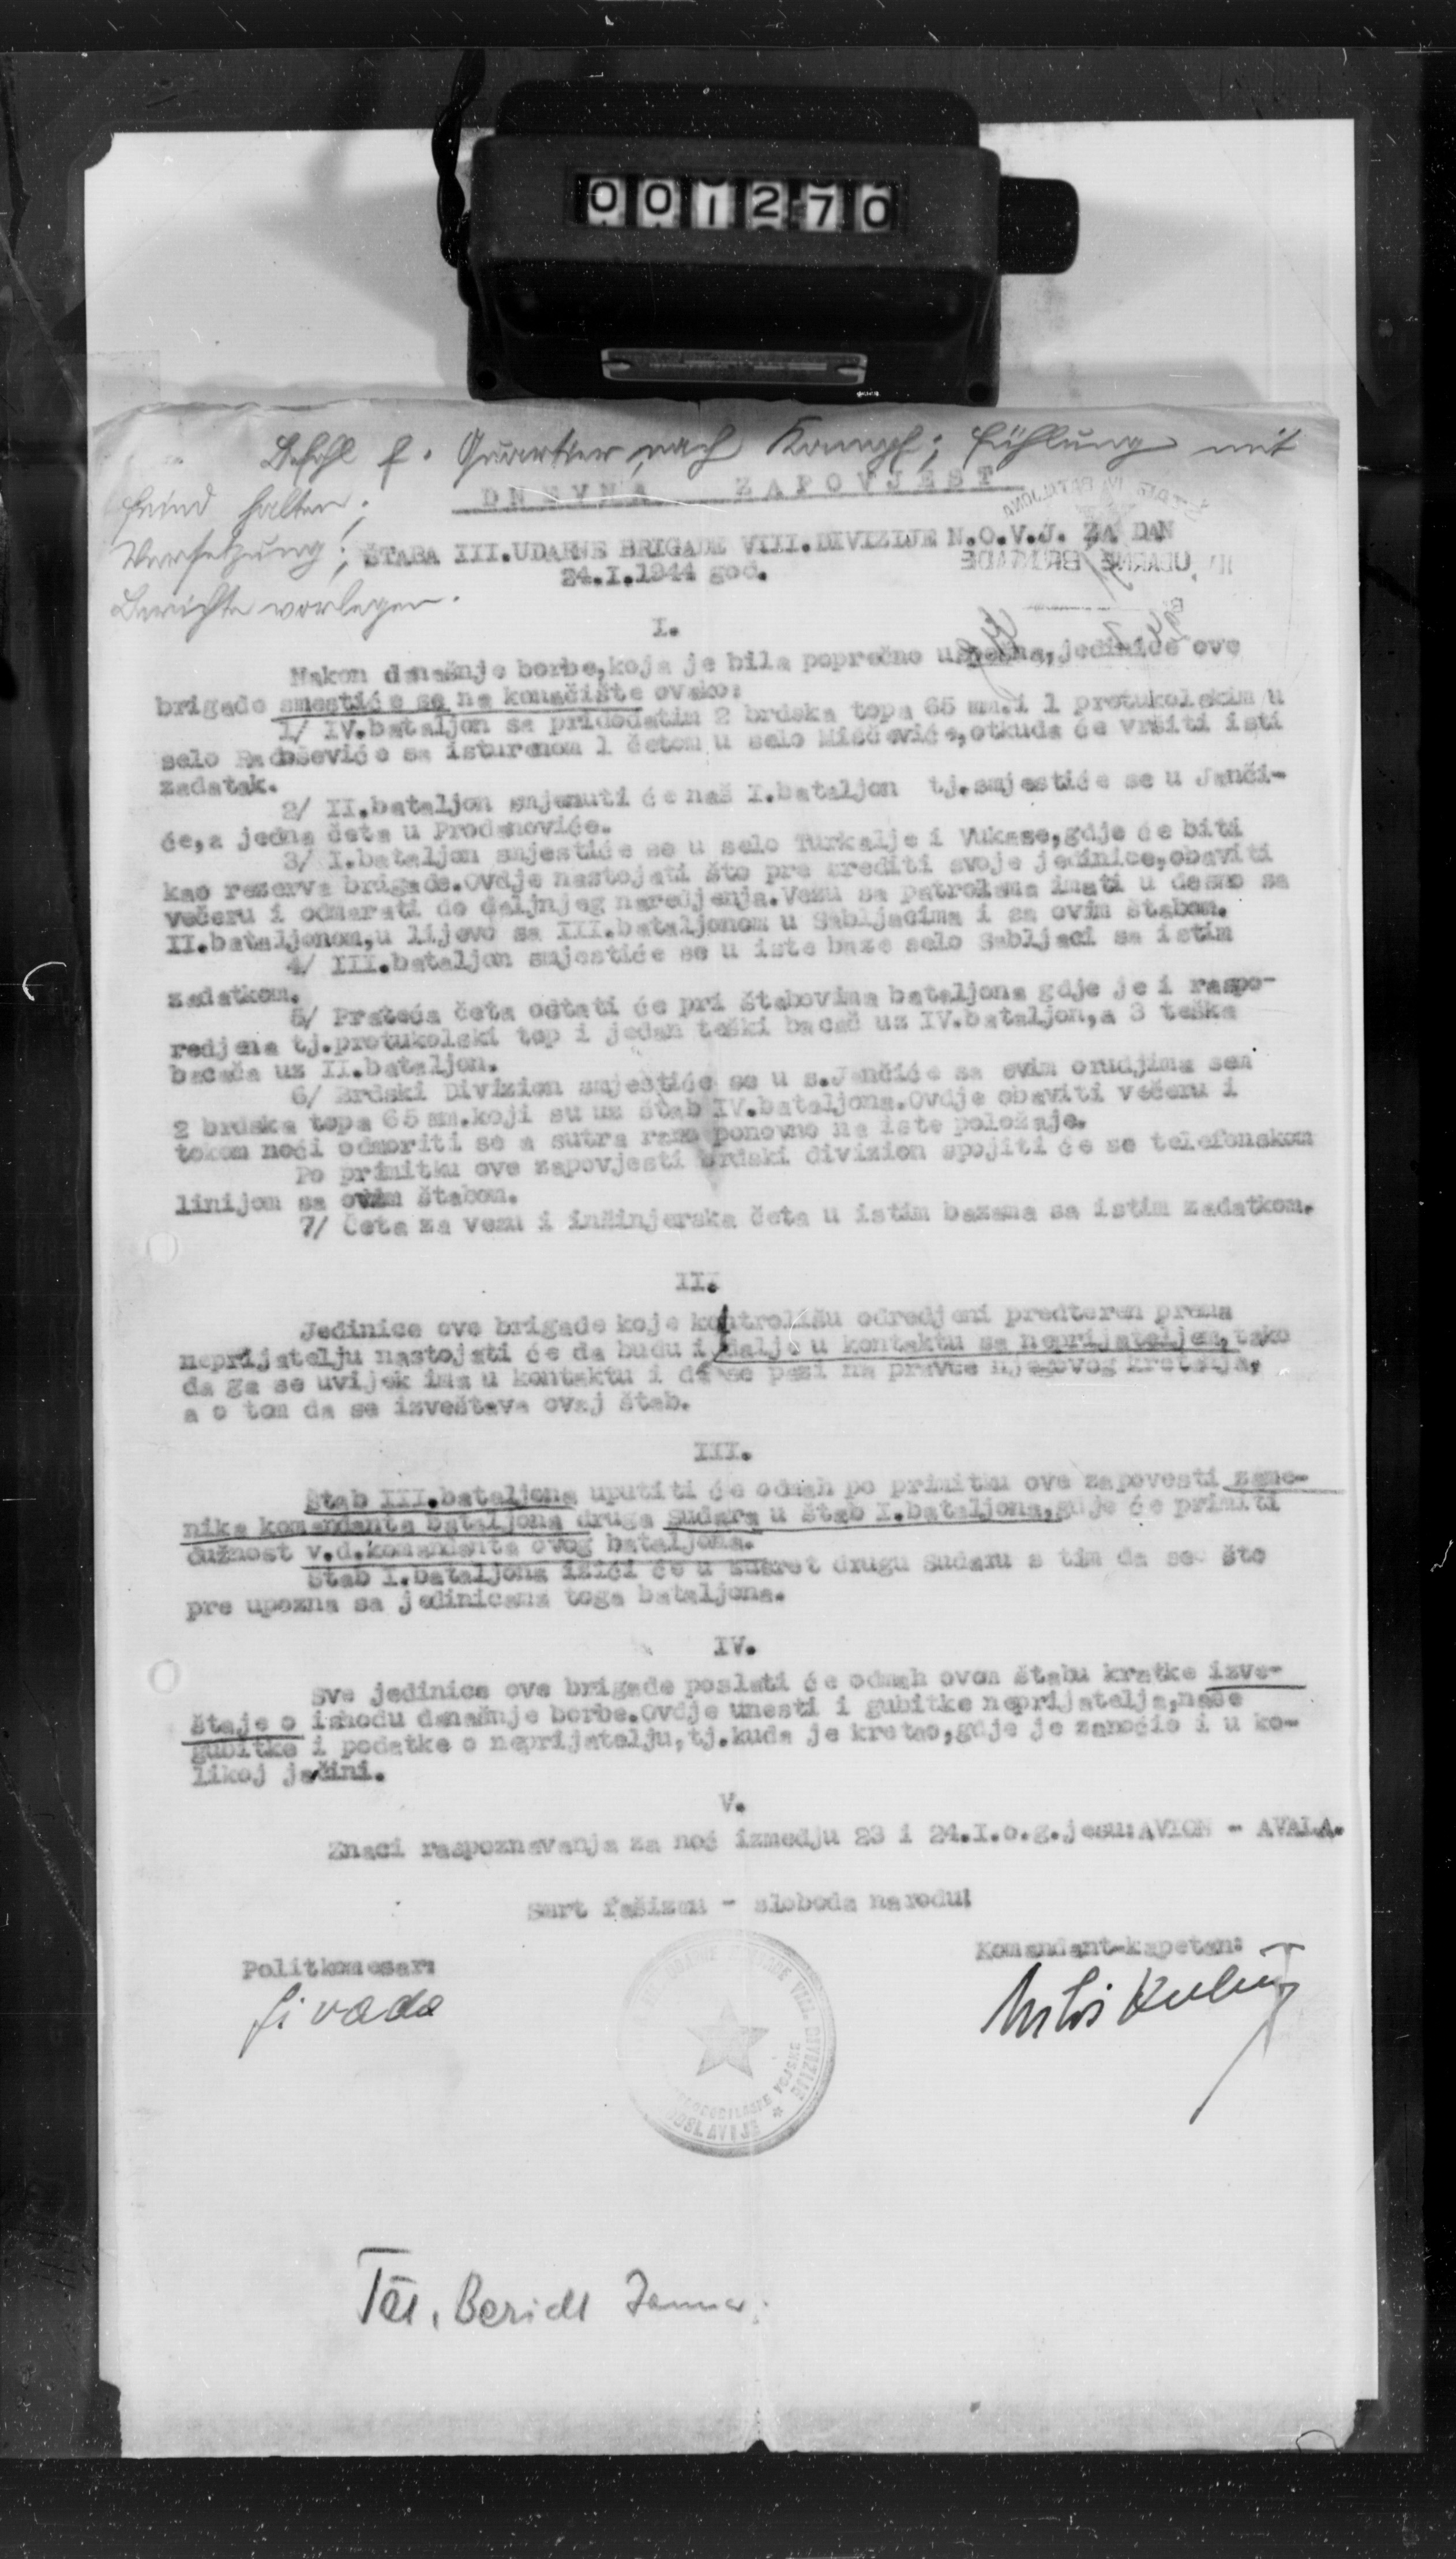 001270
Befehl f. Quartier nach Kampf; Fühlung mit
Feind halten;
Versetzung;
Berichte vorlegen.
DNEVNA ZAPOVJEST
ŠTABA III.UDARNE BRIGADE VIII.DIVIZIJE N.O.V.J. ZA DAN
24.I.1944 god.
ŠTAB IV BATALJONA
III UDARNE BRIGADE
I.
Nakon današnje borbe,koja je bila poprečno uspešna,jedinice ove
brigade smestiće se na konačište ovako:
1/ IV.bataljon sa pridodatim 2 brdska topa 65 mm.i 1 protukolskim u
selo Radoševiće sa isturenom 1 četom u selo Miščeviće,otkuda će vršiti isti
zadatak.
2/ II.bataljon smjenuti će naš I.bataljon tj.smjestiće se u Janči-
će,a jedna četa u Prodanoviće.
3/ I.bataljon smjestiće se u selo Turkalje i Vukase,gdje će biti
kao rezerva brigade.Ovdje nastojati što pre urediti svoje jedinice,obaviti
večeru i odmarati do daljnjeg naredjenja.Vezu sa patrolama imati u desno sa
II.bataljonom,u lijevo sa III.bataljonom u Sabljacima i sa ovim štabom.
4/ III.bataljon smjestiće se u iste baze selo Sabljaci sa istim
zadatkom.
5/ Prateća četa ostati će pri štabovima bataljona gdje je i raspo-
redjena tj.protukolski top i jedan teški bacač uz IV.bataljon,a 3 teška
bacača uz II.bataljon.
6/ Brdski Divizion smjestiće se u s.Jančiće sa svim orudjima sem
2 brdska topa 65 mm.koji su uz štab IV.bataljona.Ovdje obaviti večeru i
tokom noći odmoriti se a sutra rano ponovno na iste položaje.
Po primitku ove zapovjesti brdski divizion spojiti će se telefonskom
linijom sa ovim štabom.
7/ Četa za vezu i inžinjerska četa u istim bazama sa istim zadatkom.
II.
Jedinice ove brigade koje kontrolišu odredjeni predteren prema
neprijatelju nastojati će da budu i dalje u kontaktu sa neprijateljem,tako
da ga se uvijek ima u kontaktu i da se pazi na pravce njegovog kretanja,
a o tom da se izveštava ovaj štab.
III.
Štab III.bataljona uputiti će odmah po primitku ove zapovesti zame-
nika komandanta bataljona druga Sudara u štab I.bataljona,gdje će primiti
dužnost v.d.komandanta ovog bataljona.
Štab I.bataljona izići će u susret drugu Sudaru s tim da se što
pre upozna sa jedinicama toga bataljona.
IV.
Sve jedinice ove brigade poslati će odmah ovom štabu kratke izve-
štaje o ishodu današnje borbe.Ovdje unesti i gubitke neprijatelja,naše
gubitke i podatke o neprijatelju,tj.kuda je kretao,gdje je zanoćio i u ko-
likoj jačini.
V.
Znaci raspoznavanja za noć izmedju 23 i 24.I.o.g.jesu:AVION - AVALA.
Smrt fašizmu - sloboda narodu!
Politkomesar:
Komandant-kapetan: